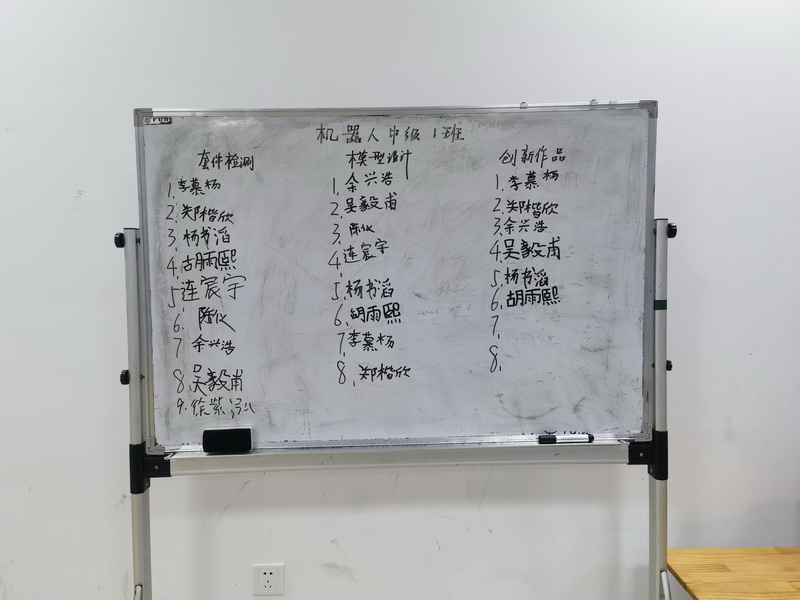 机器人中级1班
套件检测
1. 李慕杨
2. 郑楷欣
3. 杨书滔
4. 胡雨熙
5 连宸宇
6.
7 余兴浩
8. 吴毅甫
9. 徐紫
模型设计
1. 余兴浩
2. 吴毅甫
3.
4. 连宸宇
5. 杨书滔
6. 胡雨熙
7. 李慕杨
8. 郑楷欣
创新作品
1. 李慕杨
2. 郑楷欣
3. 余兴浩
4. 吴毅甫
5. 杨书滔
6. 胡雨熙
7.
8.